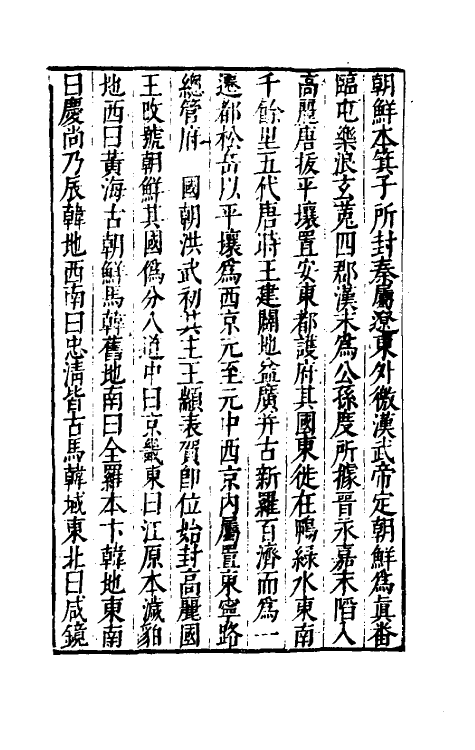 朝鮮本箕子所封秦屬遼東外徼漢武帝定朝鮮爲真番
臨屯樂浪玄菟四郡漢末爲公孫度所據晉永嘉末陷入
高麗唐拔平壤置安東都護府其國東徙在鴨緑水東南
千餘里五代唐時王建闢地益廣并古新羅百濟而爲一
遷都松岳以平壤爲西京元至元中西京内屬置東寧路
總管府　國朝洪武初其主王顓表賀卽位始封高麗國
王改號朝鮮其國僞分八道中曰京畿東曰江原本濊貊
地西曰黃海古朝鮮馬韓舊地南曰全羅本卞韓地東南
曰慶尚乃辰韓地西南曰忠清皆古馬韓域東北曰咸鏡